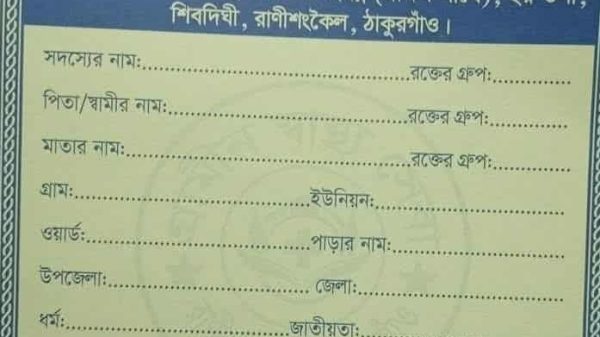 শিবদিঘী, রাণীশংকৈল, ঠাকুরগাঁও।
সদস্যের নাম:..............................................রক্তের গ্রুপ:....................
পিতা/স্বামীর নাম:..........................................রক্তের গ্রুপ:....................
মাতার নাম:................................................রক্তের গ্রুপ:....................
গ্রাম:........................................ইউনিয়ন:....................................
ওয়ার্ড:......................................পাড়ার নাম:.................................
উপজেলা:................................... জেলা:.......................................
ধর্ম:......................................জাতীয়তা:....................................